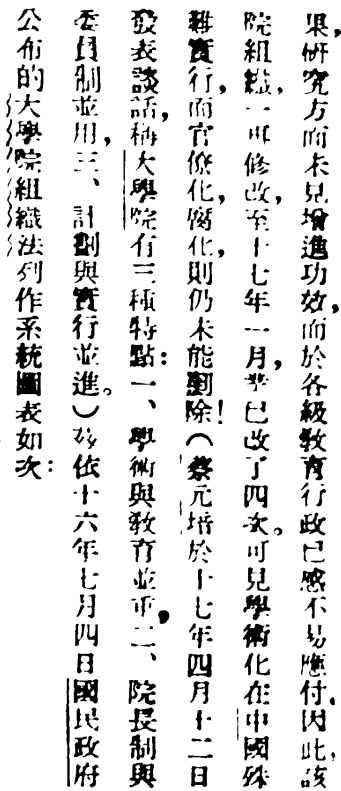 果,研究方面未見增進功效,而於各級敎育行政已感不易應付,因此,該
院組織,一再修改,至十七年一月,業已改了四次。可見學術化在中國殊
難實行,而官僚化,腐化,則仍未能剷除!(蔡元培於十七年四月十二日
發表談話,稱大學院有三種特點:一、學術與敎育並重,二、院長制與
委員制並用,三、計劃與實行並進。)茲依十六年七月四日國民政府
公布的大學院組織法列作系統圖表如次: